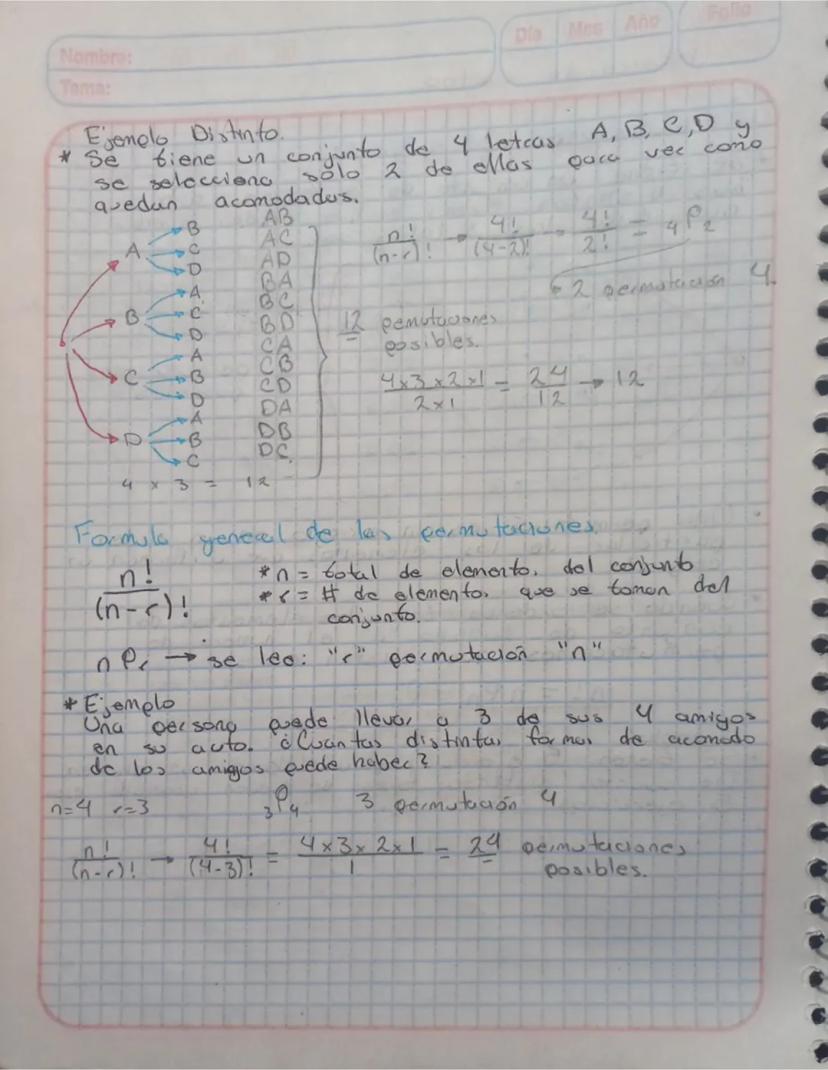 Nombre:
Tema:
Día Mes Año Folio
Ejemplo Distinto.
* Se tiene un conjunto de 4 letras A, B, C, D y
se selecciona solo 2 de ellas para ver como
quedan acomodadas.
A B C D
B A C D
C A B D
D A B C
AB
AC
AD
BA
BC
BD
CA
CB
CD
DA
DB
DC
4 x 3 = 12
n!/(n-r)! → 4!/(4-2)! → 4!/2! = 4P2
2 permutación 4
12 permutaciones
posibles.
4x3x2x1/2x1 = 24/12 → 12
Formula general de las permutaciones
n!/(n-r)!
*n = total de elemento. del conjunto
*r = # de elemento. que se toman del
conjunto.
nPr → se leo: "r" permutación "n"
* Ejemplo
Una persona puede llevar a 3 de sus 4 amigos
en su auto. ¿Cuantas distintas formas de acomodo
de los amigos puede haber?
n=4 r=3 3P4 3 permutación 4
n!/(n-r)! → 4!/(4-3)! = 4x3x2x1/1 = 24 permutaciones
posibles.